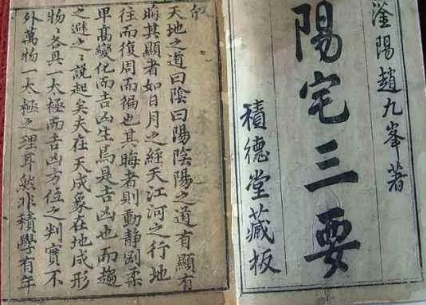 滏陽趙九峯著
陽宅三要
積德堂藏板
天地之道曰陰曰陽陰陽之道有顯有
晦其顯者如日月之經天江河之行地
往而復周而徧也其晦者則動靜剛柔
卑高變化而吉凶生焉是吉凶也而趨
之避之〻說起矣夫在天成象在地成形
物〻各具一太極而吉凶方位之判實不
外萬物一太極之理耳然非積學有年